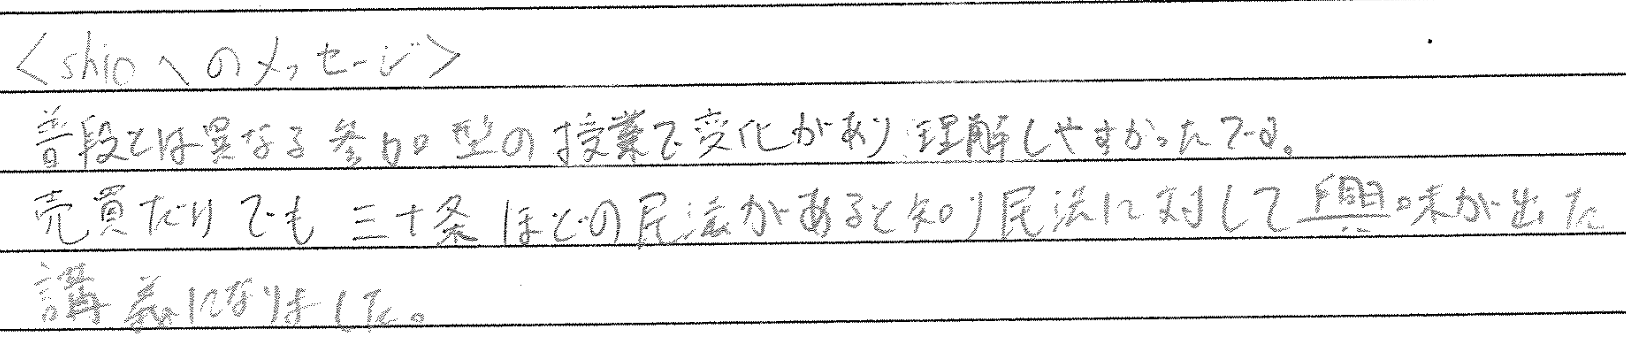 <shioへのメッセージ>
普段とは異なる参加型の授業で変化があり理解しやすかったです。
売買だけでも三十条ほどの民法があると知り民法に対して興味が出た
講義になりました。